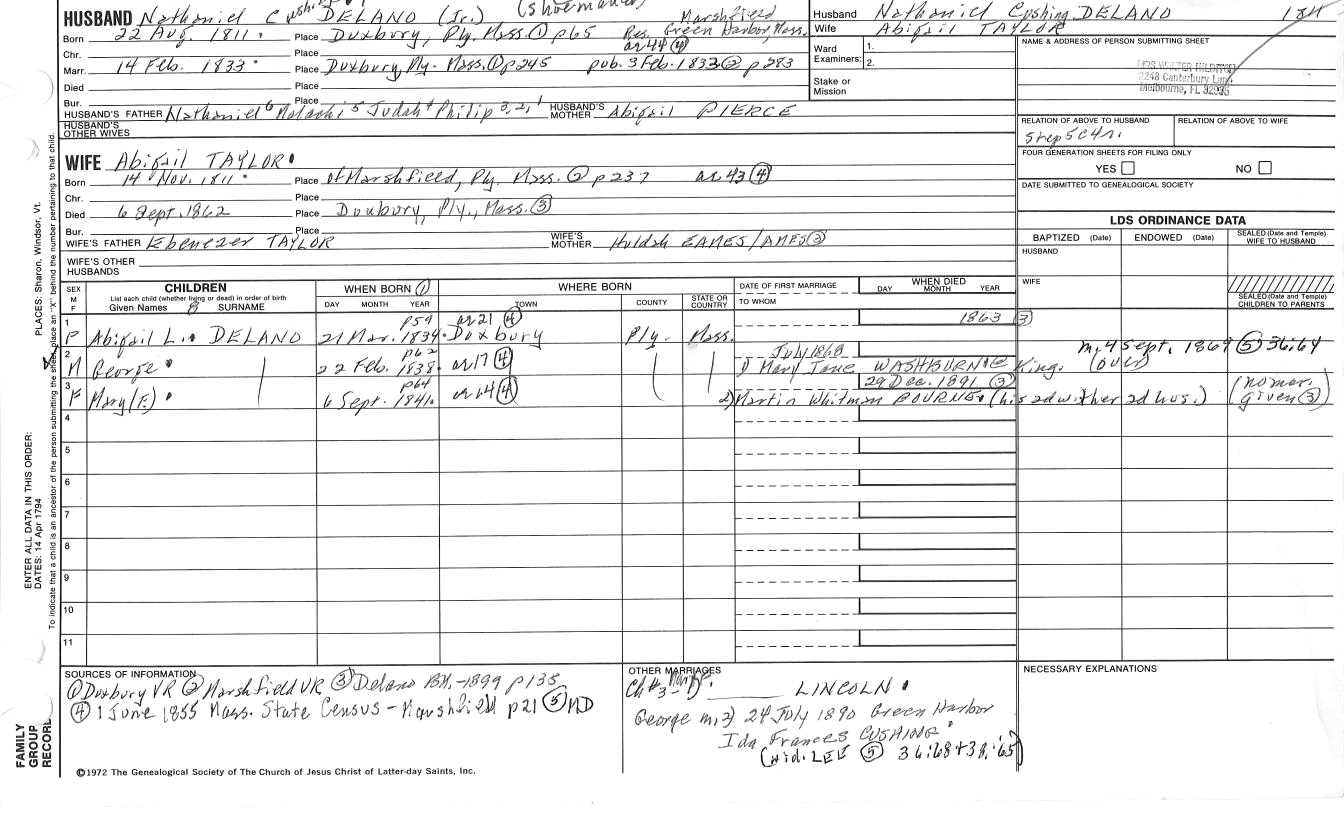 HUSBAND Nathaniel Cushing DELANO (Jr.) (Shoemaker)
Born 22 Aug. 1811. Place Duxbury, Ply. Mass. ① p65 Res. Marshfield Green Harbor, Mass.
Chr. Place ae 44 ④
Marr. 14 Feb. 1833. Place Duxbury, Ply. Mass. ① p245 pub. 3 Feb. 1833 ② p283
Died Place
Bur. Place
HUSBAND'S FATHER Nathaniel 6 Malachi 5 Judah 4 Philip 3,2,1 HUSBAND'S MOTHER Abigail PIERCE
HUSBAND'S OTHER WIVES
Husband Nathaniel Cushing DELANO 184
Wife Abigail TAYLOR
Ward 1.
Examiners: 2.
Stake or Mission
NAME & ADDRESS OF PERSON SUBMITTING SHEET
2248 Canterbury Lane
Melbourne, FL 32935
RELATION OF ABOVE TO HUSBAND RELATION OF ABOVE TO WIFE
Step 5C4r.
FOUR GENERATION SHEETS FOR FILING ONLY
YES NO
DATE SUBMITTED TO GENEALOGICAL SOCIETY
LDS ORDINANCE DATA
BAPTIZED (Date) ENDOWED (Date) SEALED (Date and Temple) WIFE TO HUSBAND
HUSBAND
WIFE
SEALED (Date and Temple) CHILDREN TO PARENTS
WIFE Abigail TAYLOR.
Born 14 Nov. 1811 Place of Marshfield, Ply. Mass. ② p237 ae 43 ④
Chr. Place
Died 6 Sept. 1862 Place Duxbury, Ply., Mass. ③
Bur. Place
WIFE'S FATHER Ebenezer TAYLOR WIFE'S MOTHER Huldah EAMES/AMES ②
WIFE'S OTHER HUSBANDS
SEX M F CHILDREN WHEN BORN ① WHERE BORN DATE OF FIRST MARRIAGE WHEN DIED
List each child (whether living or dead) in order of birth
Given Names SURNAME DAY MONTH YEAR TOWN COUNTY STATE OR COUNTRY TO WHOM DAY MONTH YEAR
1 F Abigail L. DELANO 21 Mar. 1834. p59 Duxbury ae 21 ④ Ply. Mass. 1863 ③
2 M George. 22 Feb. 1838. p62 ae 17 ④ July 1868 1) Mary Jane WASHBURN ② King. m. 4 Sept. 1869 ⑤ 36:64 (over)
3 F Mary (F.). 6 Sept. 1841. p64 ae 14 ④ 29 Dec. 1891 ③ 2) Martin Whitman BOURNE. (his 2d w. + her 2d hus.) (no mar. given ③)
4
5
6
7
8
9
10
11
SOURCES OF INFORMATION
① Duxbury VR ② Marshfield VR ③ Delano BK. -1899 p135
④ 1 June 1855 Mass. State Census - Marshfield p21 ⑤ MD
OTHER MARRIAGES
Ch #3 - Mary F. 1) ______ LINCOLN.
George m. 2) 24 July 1890 Green Harbor
Ida Frances CUSHING.
(wid. LEE ⑤ 36:68 + 38:65)
NECESSARY EXPLANATIONS
©1972 The Genealogical Society of The Church of Jesus Christ of Latter-day Saints, Inc.
FAMILY GROUP RECORD
ENTER ALL DATA IN THIS ORDER:
DATES: 14 Apr 1794
PLACES: Sharon, Windsor, Vt.
To indicate that a child is an ancestor of the person submitting the sheet, place an "X" behind the number pertaining to that child.